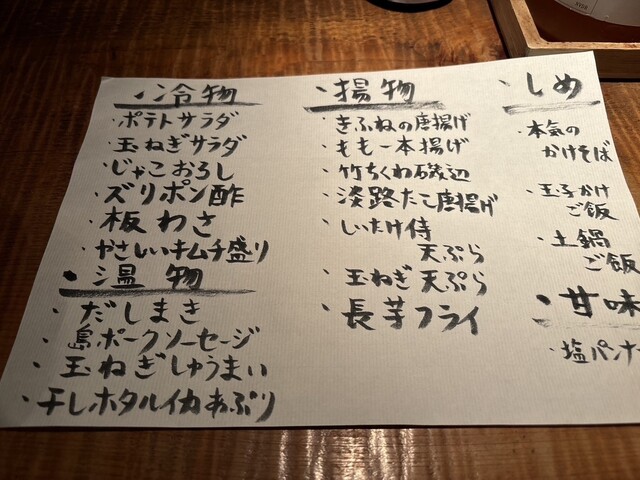 ・冷物
・ポテトサラダ
・玉ねぎサラダ
・じゃこおろし
・ズリポン酢
・板わさ
・やさしいキムチ盛り
・温物
・だしまき
・島ポークソーセージ
・玉ねぎしゅうまい
・干しホタルイカあぶり
・揚物
・きふねの唐揚げ
・もも一本揚げ
・竹ちくわ磯辺
・淡路たこ唐揚げ
・しいたけ侍
天ぷら
・玉ねぎ天ぷら
・長芋フライ
・しめ
・本気の
かけそば
・玉子かけ
ご飯
・土鍋
ご飯
・甘味
・塩パンナ